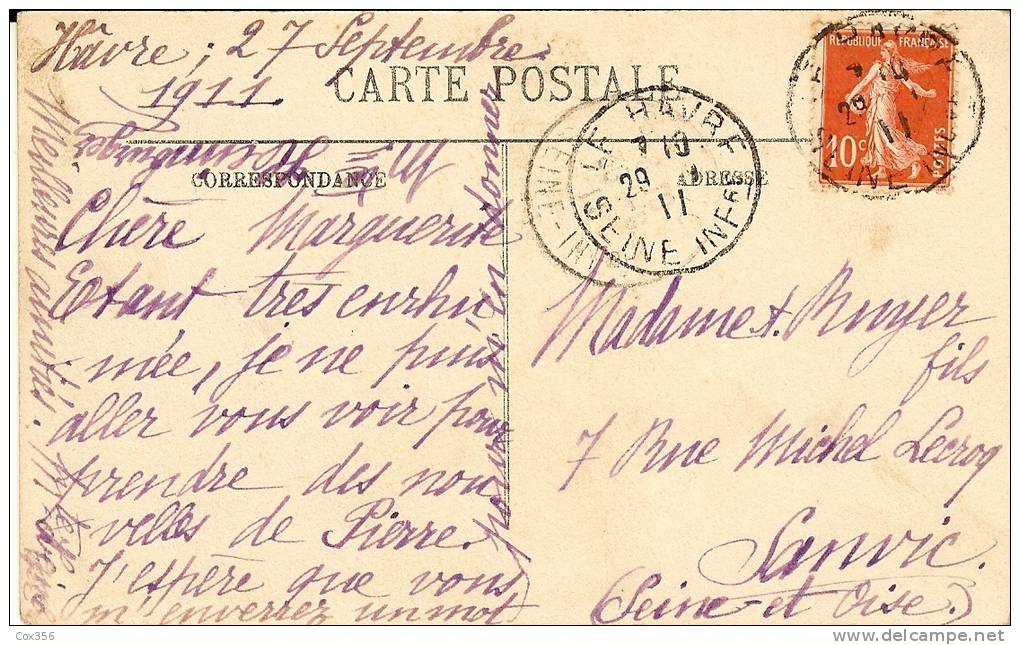 Hâvre, 27 Septembre
1911.
CARTE POSTALE
CORRESPONDANCE
ADRESSE
Chère Marguerite
Etant très enrhu
mée, je ne puis
aller vous voir pour
prendre des nou
velles de Pierre.
J'espère que vous
m'enverrez un mot
pour m'en donner
Meilleures amitiés.
Madame A. Ruyer
fils
7 Rue Michel Lecroq
Sanvic.
(Seine-et Oise.)
LE HAVRE
7 10
29
11
SEINE INFRE
REPUBLIQUE FRANÇAISE
10c
POSTES
Cox356
delcampe.net